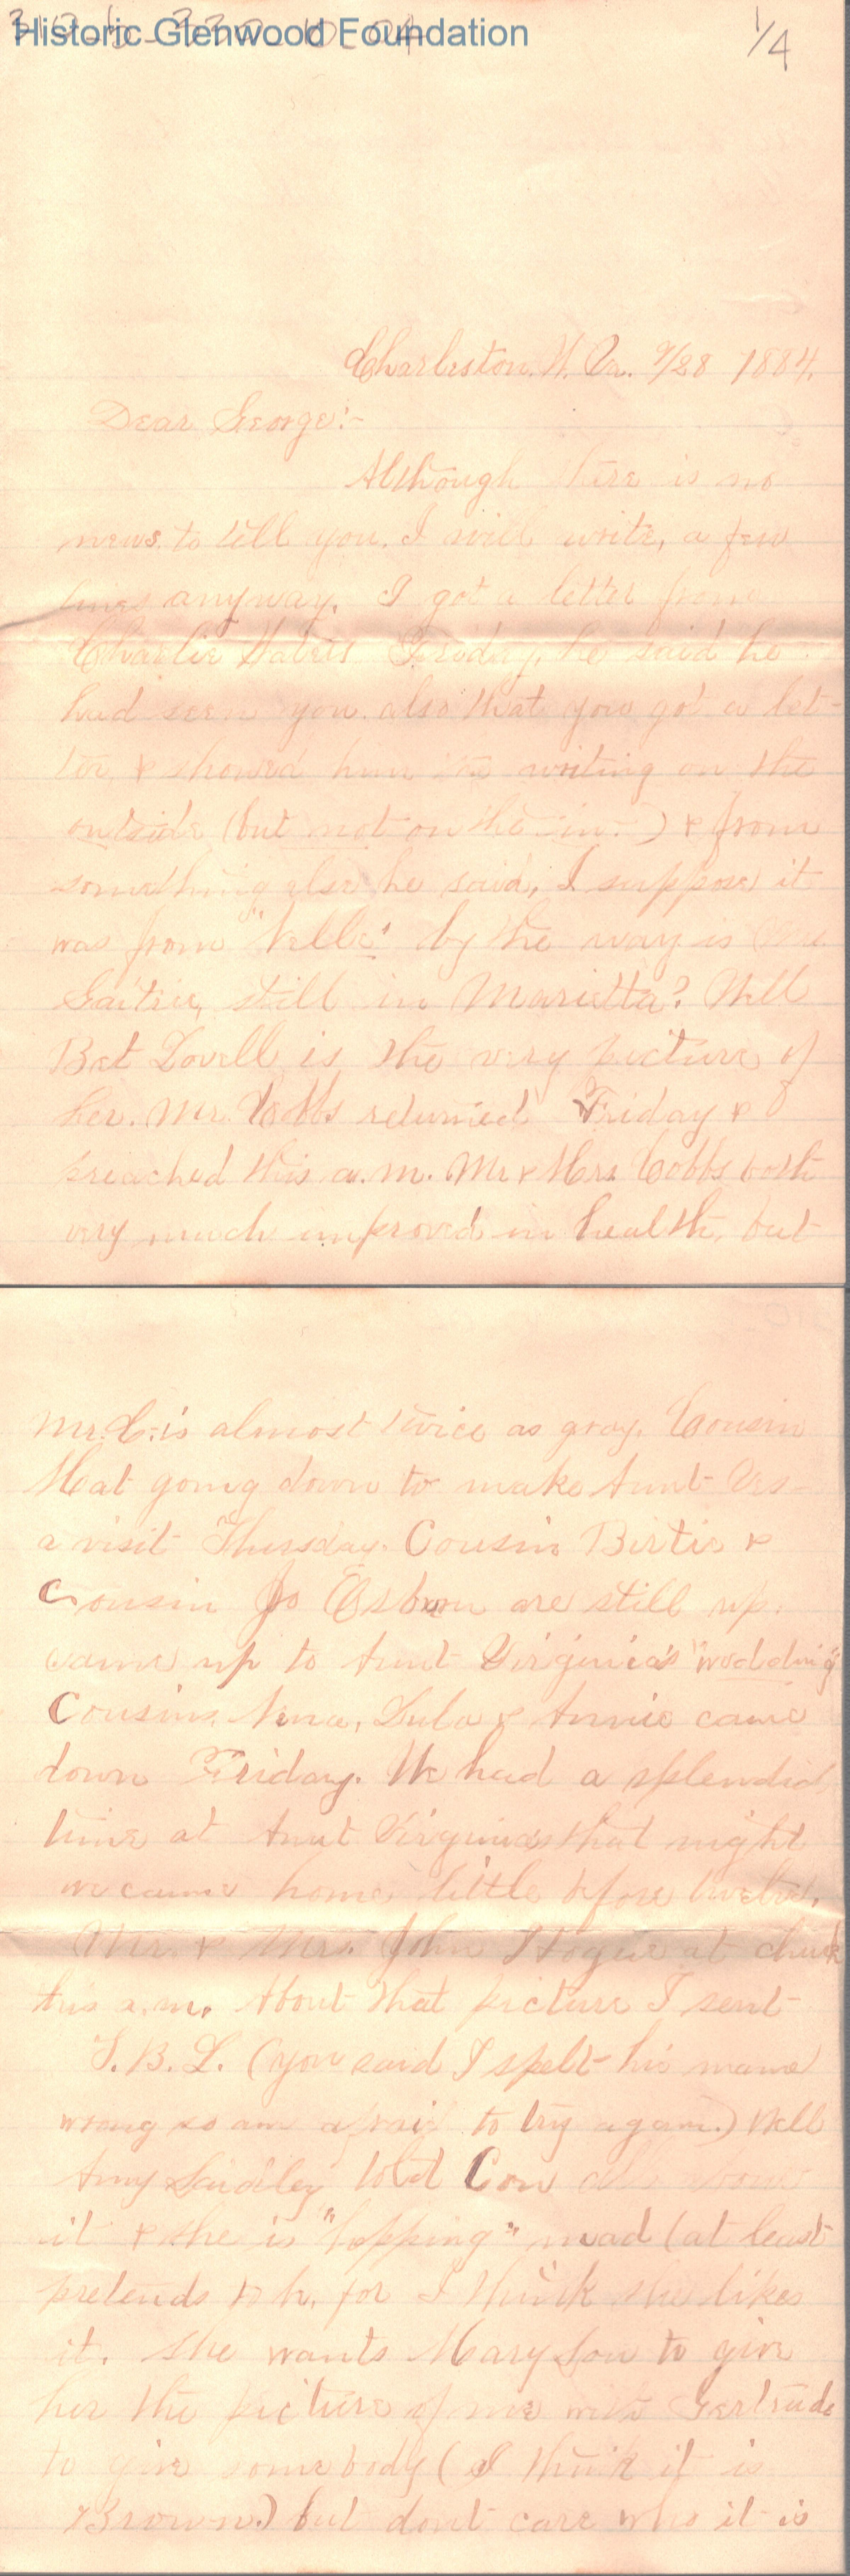 Historic Glenwood Foundation
1/4
Charleston, W. Va. 9/28 1884.
Dear George:-
Although there is no
news to tell you. I will write, a few
lines anyway. I got a letter from
Charlie Friday, he said he
had seen you also that you got a let-
ter, & showed him the writing on the
outside (but not on the in-) & from
something else he said, I suppose it
was from "Nelle" by the way is
still in Marietta? Well
Bet Lovell is the very picture of
her. Mr. Cobbs returned Friday &
preached this a.m. Mr & Mrs. Cobbs both
very much improved in health, but
Mr. C. is almost twice as gray. Cousin
Mat going down to make Aunt Ves-
a visit Thursday. Cousin Birtie &
Cousin Jo are still up.
came up to Aunt Virginia's "wedding"
Cousins Nena, Lula & Annie came
down Friday. We had a splendid
time at Aunt Virginias that night
we came home little before twelve.
Mr. & Mrs. John Hogue at church
this a.m. About that picture I sent
T. B. L. (you said I spelt his name
wrong so am afraid to try again.) Well
Amy Laidley told Con all about
it & she is "hopping" mad (at least
pretends to be, for I think she likes
it. She wants Mary Lou to give
her the picture of me with Gertrude
to give somebody (I think it is
Brown.) but dont care who it is